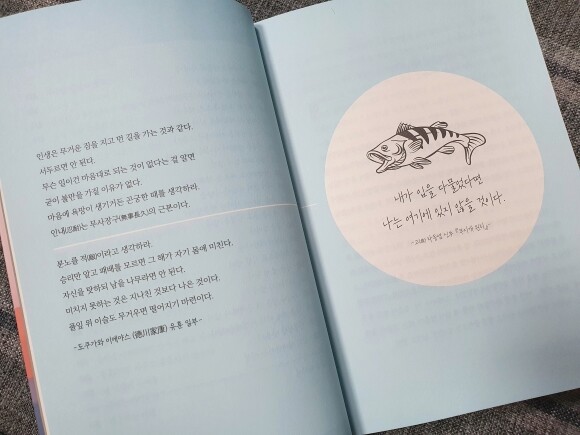 인생은 무거운 짐을 지고 먼 길을 가는 것과 같다.
서두르면 안 된다.
무슨 일이건 마음대로 되는 것이 없다는 걸 알면
굳이 불만을 가질 이유가 없다.
마음에 욕망이 생기거든 곤궁한 때를 생각하라.
인내(忍耐)는 무사장구(無事長久)의 근본이다.
분노를 적(敵)이라고 생각하라.
승리만 알고 패배를 모르면 그 해가 자기 몸에 미친다.
자신을 탓하되 남을 나무라면 안 된다.
미치지 못하는 것은 지나친 것보다 나은 것이다.
풀잎 위 이슬도 무거우면 떨어지기 마련이다.
- 도쿠가와 이에야스 (德川家康) 유훈 일부 -
내가 입을 다물었다면
나는 여기에 있지 않을 것이다.